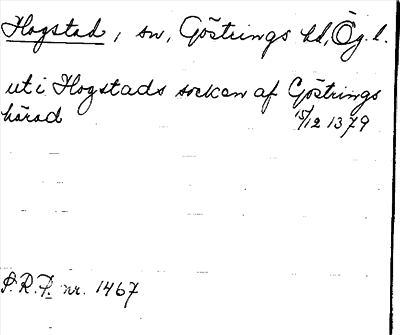 Hogstad, sn, Göstrings hd, Ög. l.
ut i Hogstads sockan af Göstrings
härad 15/12 1379
S. R. P. nr. 1467